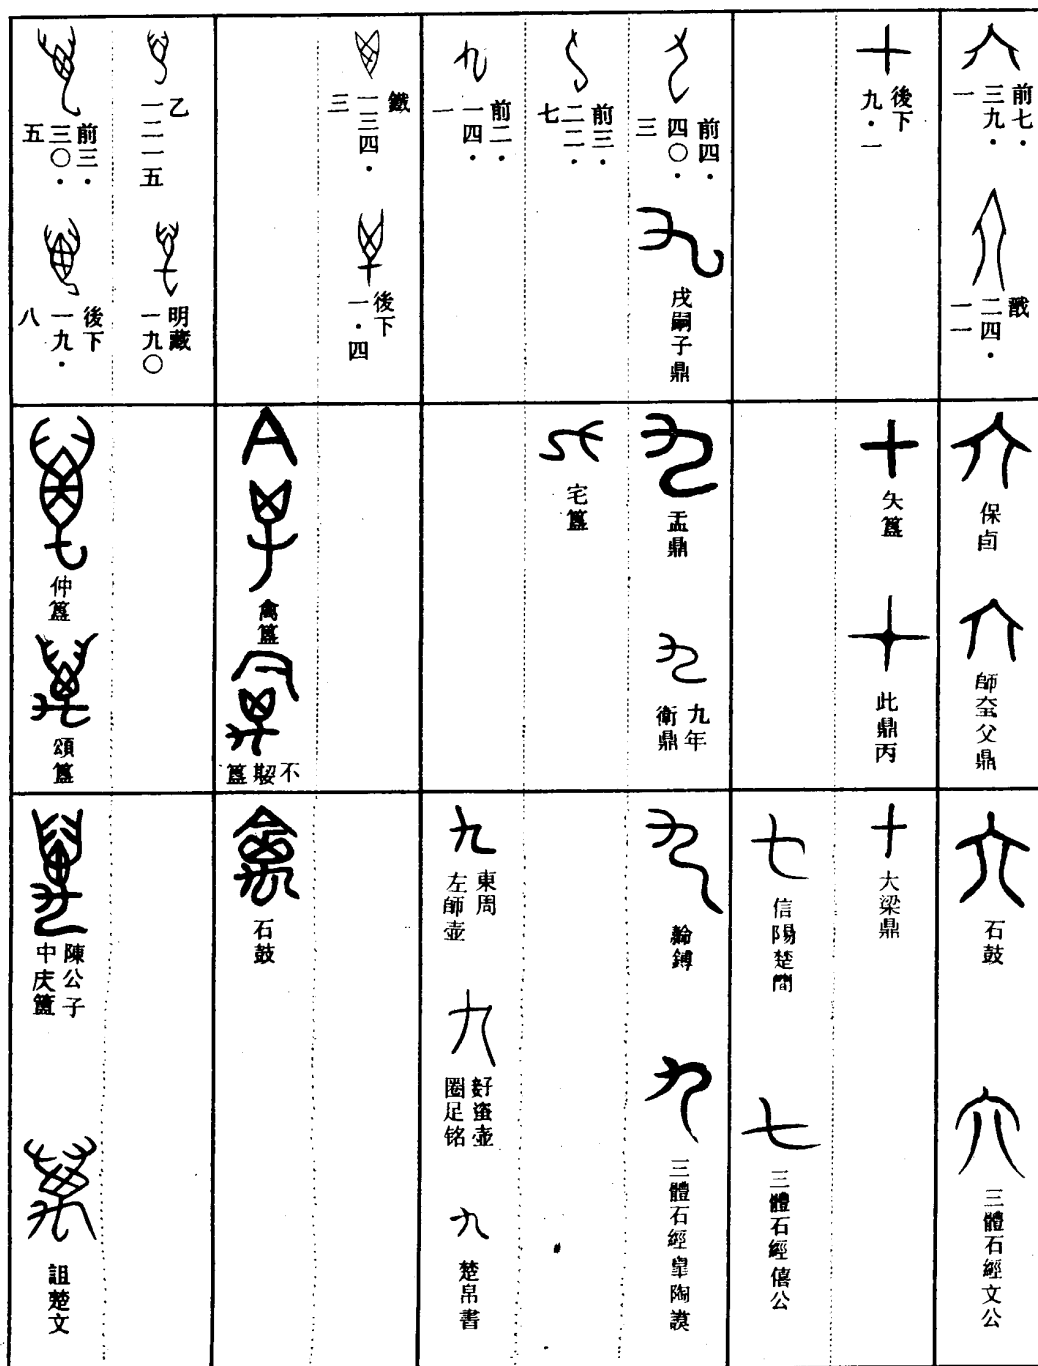 前七·
三九·
一
戩
二四·
一一
後下
九·一
前四·
四〇·
三
戍嗣子鼎
前三·
二二·
七
前二·
一四·
一
鐵
一三四·
三
後下
一·四
乙
一二一五
明藏
一九〇
前三·
三〇·
五
後下
一九·
八
保卣
師𡘇父鼎
夨簋
此鼎丙
盂鼎
九年
衛鼎
宅簋
禽簋
不
簋
仲簋
頌簋
石鼓
三體石經文公
大梁鼎
信陽楚簡
三體石經僖公
鎛
三體石經皋陶謨
東周
左師壶
圈足铭
楚帛書
石鼓
陳公子
中庆簠
詛楚文